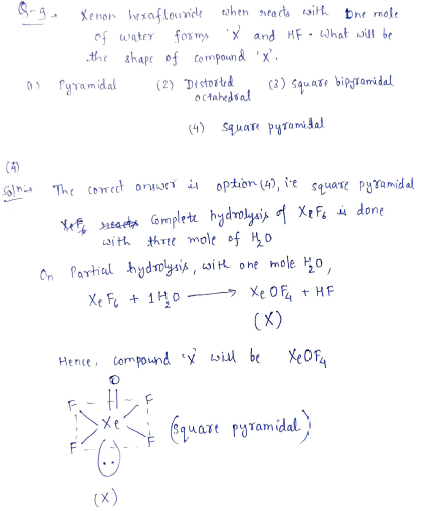 Q-9. Xenon hexaflouride when reacts with one mole
of water forms 'X' and HF. What will be
the shape of compound 'X'.
(1) Pyramidal (2) Distorted octahedral (3) Square bipyramidal
(4) Square pyramidal
(4)
Soln:→ The correct answer is option (4), i.e square pyramidal
Complete hydrolysis of XeF6 is done
with three mole of H2O
On Partial hydrolysis, with one mole H2O,
XeF6 + 1H2O → XeOF4 + HF
(X)
Hence, compound 'X' will be XeOF4
O
F F
Xe
F F
(Square pyramidal)
(X)